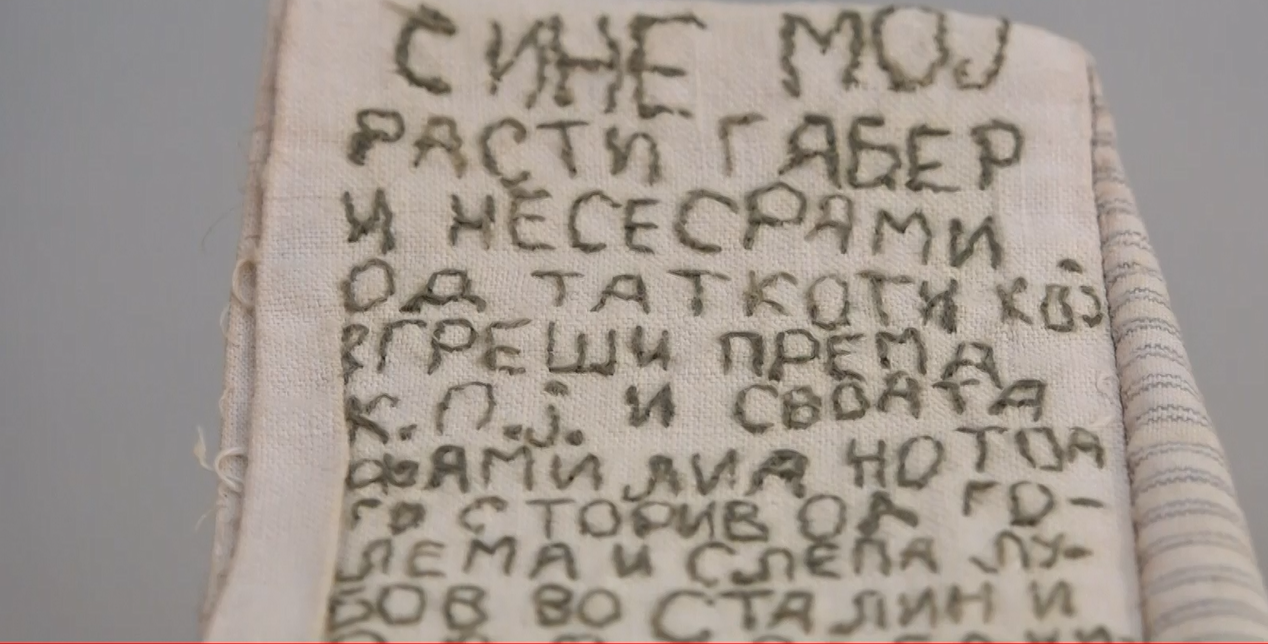 СИНЕ МОЈ
РАСТИ ГАБЕР
И НЕСЕСРАМИ
ОД ТАТКОТИ КОЈ
ЗГРЕШИ ПРЕМА
К.П.Ј. И СВОАТА
ФАМИЛИА НО ТОА
ГО СТОРИВ ОД ГО-
ЛЕМА И СЛЕПА ЛУ-
БОВ ВО СТАЛИН И